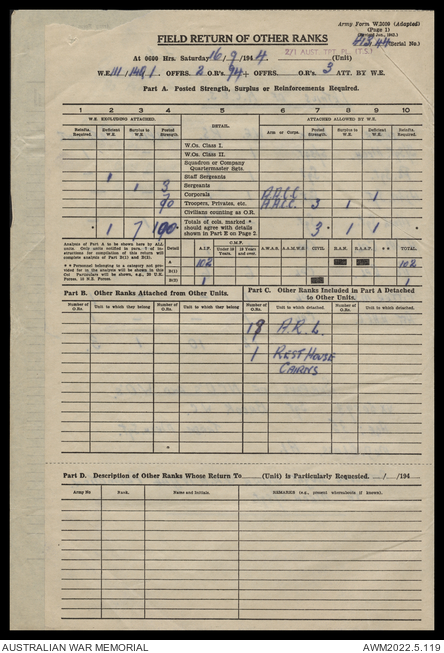 Army Form W.3009 (Adapted)
(Page 1)
(Serial No.)
FIELD RETURN OF OTHER RANKS
At 0600 Hrs. Saturday 16/9/1944. (Unit)
2/1 AUST. TPT PL. (T.S.)
W.E. OFFRS. 2 O.R's. 94+ OFFRS. O.R's. 3 ATT. BY W.E.
Part A. Posted Strength, Surplus or Reinforcements Required.
1 2 3 4 5 6 7 8 9 10
W.E. EXCLUDING ATTACHED. ATTACHED ALLOWED BY W.E.
Reinfts. Required. Deficient W.E. Surplus to W.E. Posted Strength. DETAIL. Arm or Corps. Posted Strength. Surplus to W.E. Deficient W.E. Reinfts. Required.
W.Os. Class I.
W.Os. Class II.
Squadron or Company Quartermaster Sgts.
1 Staff Sergeants
1 3 Sergeants
Corporals A.A.C.C. 1
90 Troopers, Privates, etc. A.A.C.C. 3 1
Civilians counting as O.R.
* 1 7 100 Totals of cols. marked * should agree with details shown in Part E on Page 2. 3 * 1 1
Detail A.I.F. C.M.F. Under 19 Years 19 Years and over. A.W.A.S. A.A.M.W.S. CIVIL R.A.N. R.A.A.F. * * TOTAL
A 102 102
B(1)
B(2) 1 1
Part B. Other Ranks Attached from Other Units.
Part C. Other Ranks Included in Part A Detached to Other Units.
Number of O.Rs. Unit to which they belong Number of O.Rs. Unit to which they belong Number of O.Rs. Unit to which detached. Number of O.Rs. Unit to which detached.
A.R.L.
1 REST HOUSE
CAIRNS
Part D. Description of Other Ranks Whose Return To (Unit) is Particularly Requested. / /194
Army No Rank. Name and Initials. REMARKS (e.g., present whereabouts if known).
AUSTRALIAN WAR MEMORIAL AWM2022.5.119